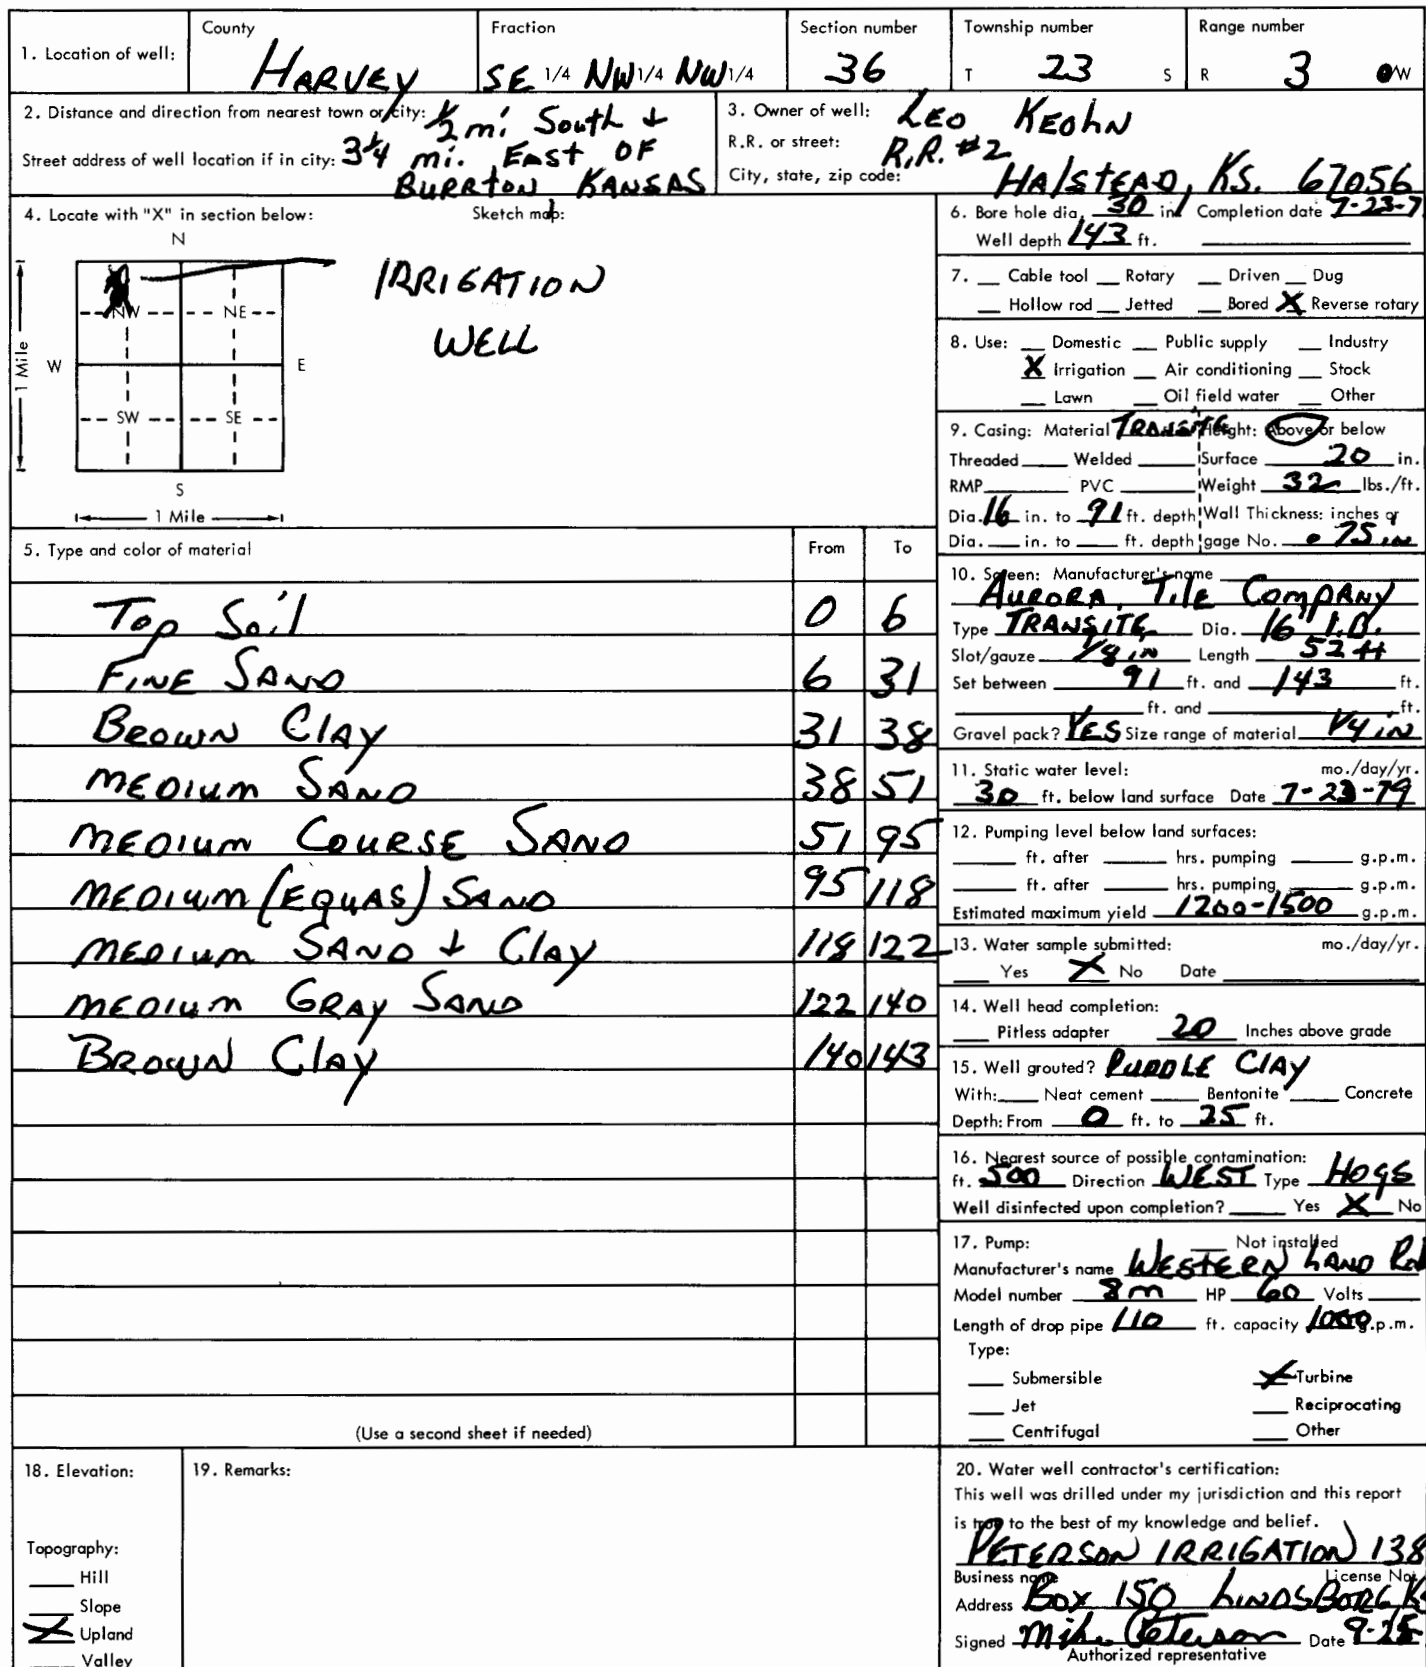 1. Location of well:
County
HARVEY
Fraction
SE 1/4 NW 1/4 NW 1/4
Section number
36
Township number
T 23 S
Range number
R 3 W
2. Distance and direction from nearest town or city: 1/2 mi South +
Street address of well location if in city: 3 1/4 mi. EAST OF
BURRTON KANSAS
3. Owner of well: LEO KEOHN
R.R. or street: R.R. #2
City, state, zip code: HALSTEAD, KS. 67056
4. Locate with "X" in section below:
Sketch map:
N
NW NE
W E
SW SE
S
1 Mile
1 Mile
IRRIGATION
WELL
5. Type and color of material From To
Top Soil 0 6
FINE SAND 6 31
BROWN Clay 31 38
MEDIUM SAND 38 51
MEDIUM COURSE SAND 51 95
MEDIUM (EQUAS) SAND 95 118
MEDIUM SAND + Clay 118 122
MEDIUM GRAY SAND 122 140
BROWN Clay 140 143
(Use a second sheet if needed)
6. Bore hole dia. 30 in. Completion date 7-23-7
Well depth 143 ft.
7. __ Cable tool __ Rotary __ Driven __ Dug
__ Hollow rod __ Jetted __ Bored X Reverse rotary
8. Use: __ Domestic __ Public supply __ Industry
X Irrigation __ Air conditioning __ Stock
__ Lawn __ Oil field water __ Other
9. Casing: Material TRANSITE Height: Above or below
Threaded __ Welded __ Surface 20 in.
RMP __ PVC __ Weight 32 lbs./ft.
Dia. 16 in. to 91 ft. depth Wall Thickness: inches or
Dia. __ in. to __ ft. depth gage No. .75 in
10. Screen: Manufacturer's name
AURORA, Tile COMPANY
Type TRANSITE Dia. 16 I.D.
Slot/gauze 1/8 in Length 52 ft
Set between 91 ft. and 143 ft.
__ ft. and __ ft.
Gravel pack? YES Size range of material 1/4 in
11. Static water level: mo./day/yr.
30 ft. below land surface Date 7-23-79
12. Pumping level below land surfaces:
__ ft. after __ hrs. pumping __ g.p.m.
__ ft. after __ hrs. pumping __ g.p.m.
Estimated maximum yield 1200-1500 g.p.m.
13. Water sample submitted: mo./day/yr.
__ Yes X No Date __
14. Well head completion:
__ Pitless adapter 20 Inches above grade
15. Well grouted? PUDDLE CLAY
With: __ Neat cement __ Bentonite __ Concrete
Depth: From 0 ft. to 25 ft.
16. Nearest source of possible contamination:
ft. 500 Direction WEST Type Hogs
Well disinfected upon completion? __ Yes X No
17. Pump: __ Not installed
Manufacturer's name WESTERN LAND
Model number 8m HP 60 Volts __
Length of drop pipe 110 ft. capacity 1000 g.p.m.
Type:
__ Submersible X Turbine
__ Jet __ Reciprocating
__ Centrifugal __ Other
18. Elevation:
Topography:
__ Hill
__ Slope
X Upland
__ Valley
19. Remarks:
20. Water well contractor's certification:
This well was drilled under my jurisdiction and this report
is true to the best of my knowledge and belief.
PETERSON IRRIGATION 138
Business name License No.
Address BOX 150 LINDSBORG KS
Signed Mike Peterson Date 9-25
Authorized representative